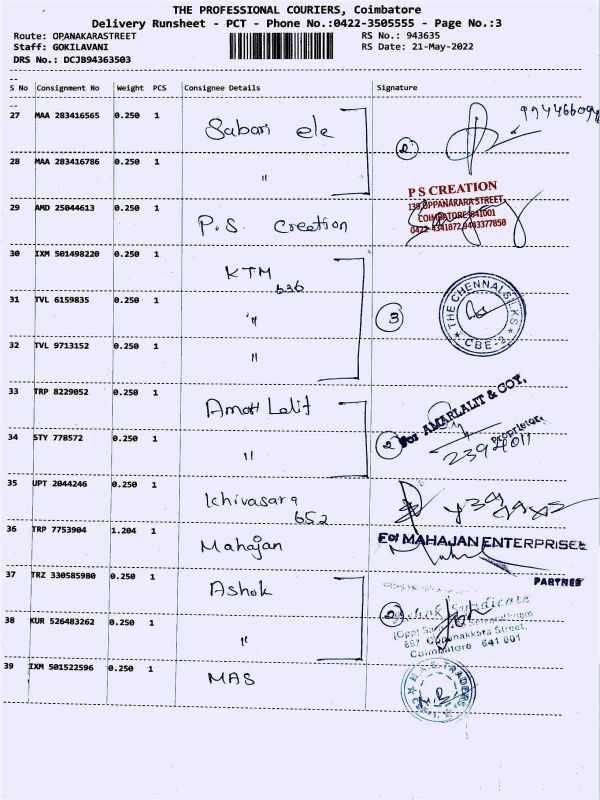 THE PROFESSIONAL COURIERS, Coimbatore
Delivery Runsheet - PCT - Phone No.:0422-3505555 - Page No.:3
Route: OPANAKARASTREET RS No.: 943635
Staff: GOKILAVANI RS Date: 21-May-2022
DRS No.: DCJB94363503
S No Consignment No Weight PCS Consignee Details Signature
27 MAA 283416565 0.250 1 Sabari ele 2
28 MAA 283416786 0.250 1 "
29 AMD 25044613 0.250 1 P.S. Creation
P S CREATION
139, OPPANAKARA STREET,
COIMBATORE-641001
30 IXM 501498220 0.250 1 KTM 636
31 TVL 6159835 0.250 1 " 3
THE CHENNAI SILKS
CBE-2
32 TVL 9713152 0.250 1 "
33 TRP 8229052 0.250 1 Amar Lalit
For AMARLALIT & COY,
Proprietor.
34 STY 778572 0.250 1 " 2
35 UPT 2044246 0.250 1 Khivasara 652
36 TRP 7753904 1.204 1 Mahajan
For MAHAJAN ENTERPRISES
PARTNER
37 TRZ 330585980 0.250 1 Ashok 2
Ashok Syndicate
38 KUR 526483262 0.250 1 "
667 Oppanakkara Street,
Coimbatore 641 001
39 IXM 501522596 0.250 1 MAS